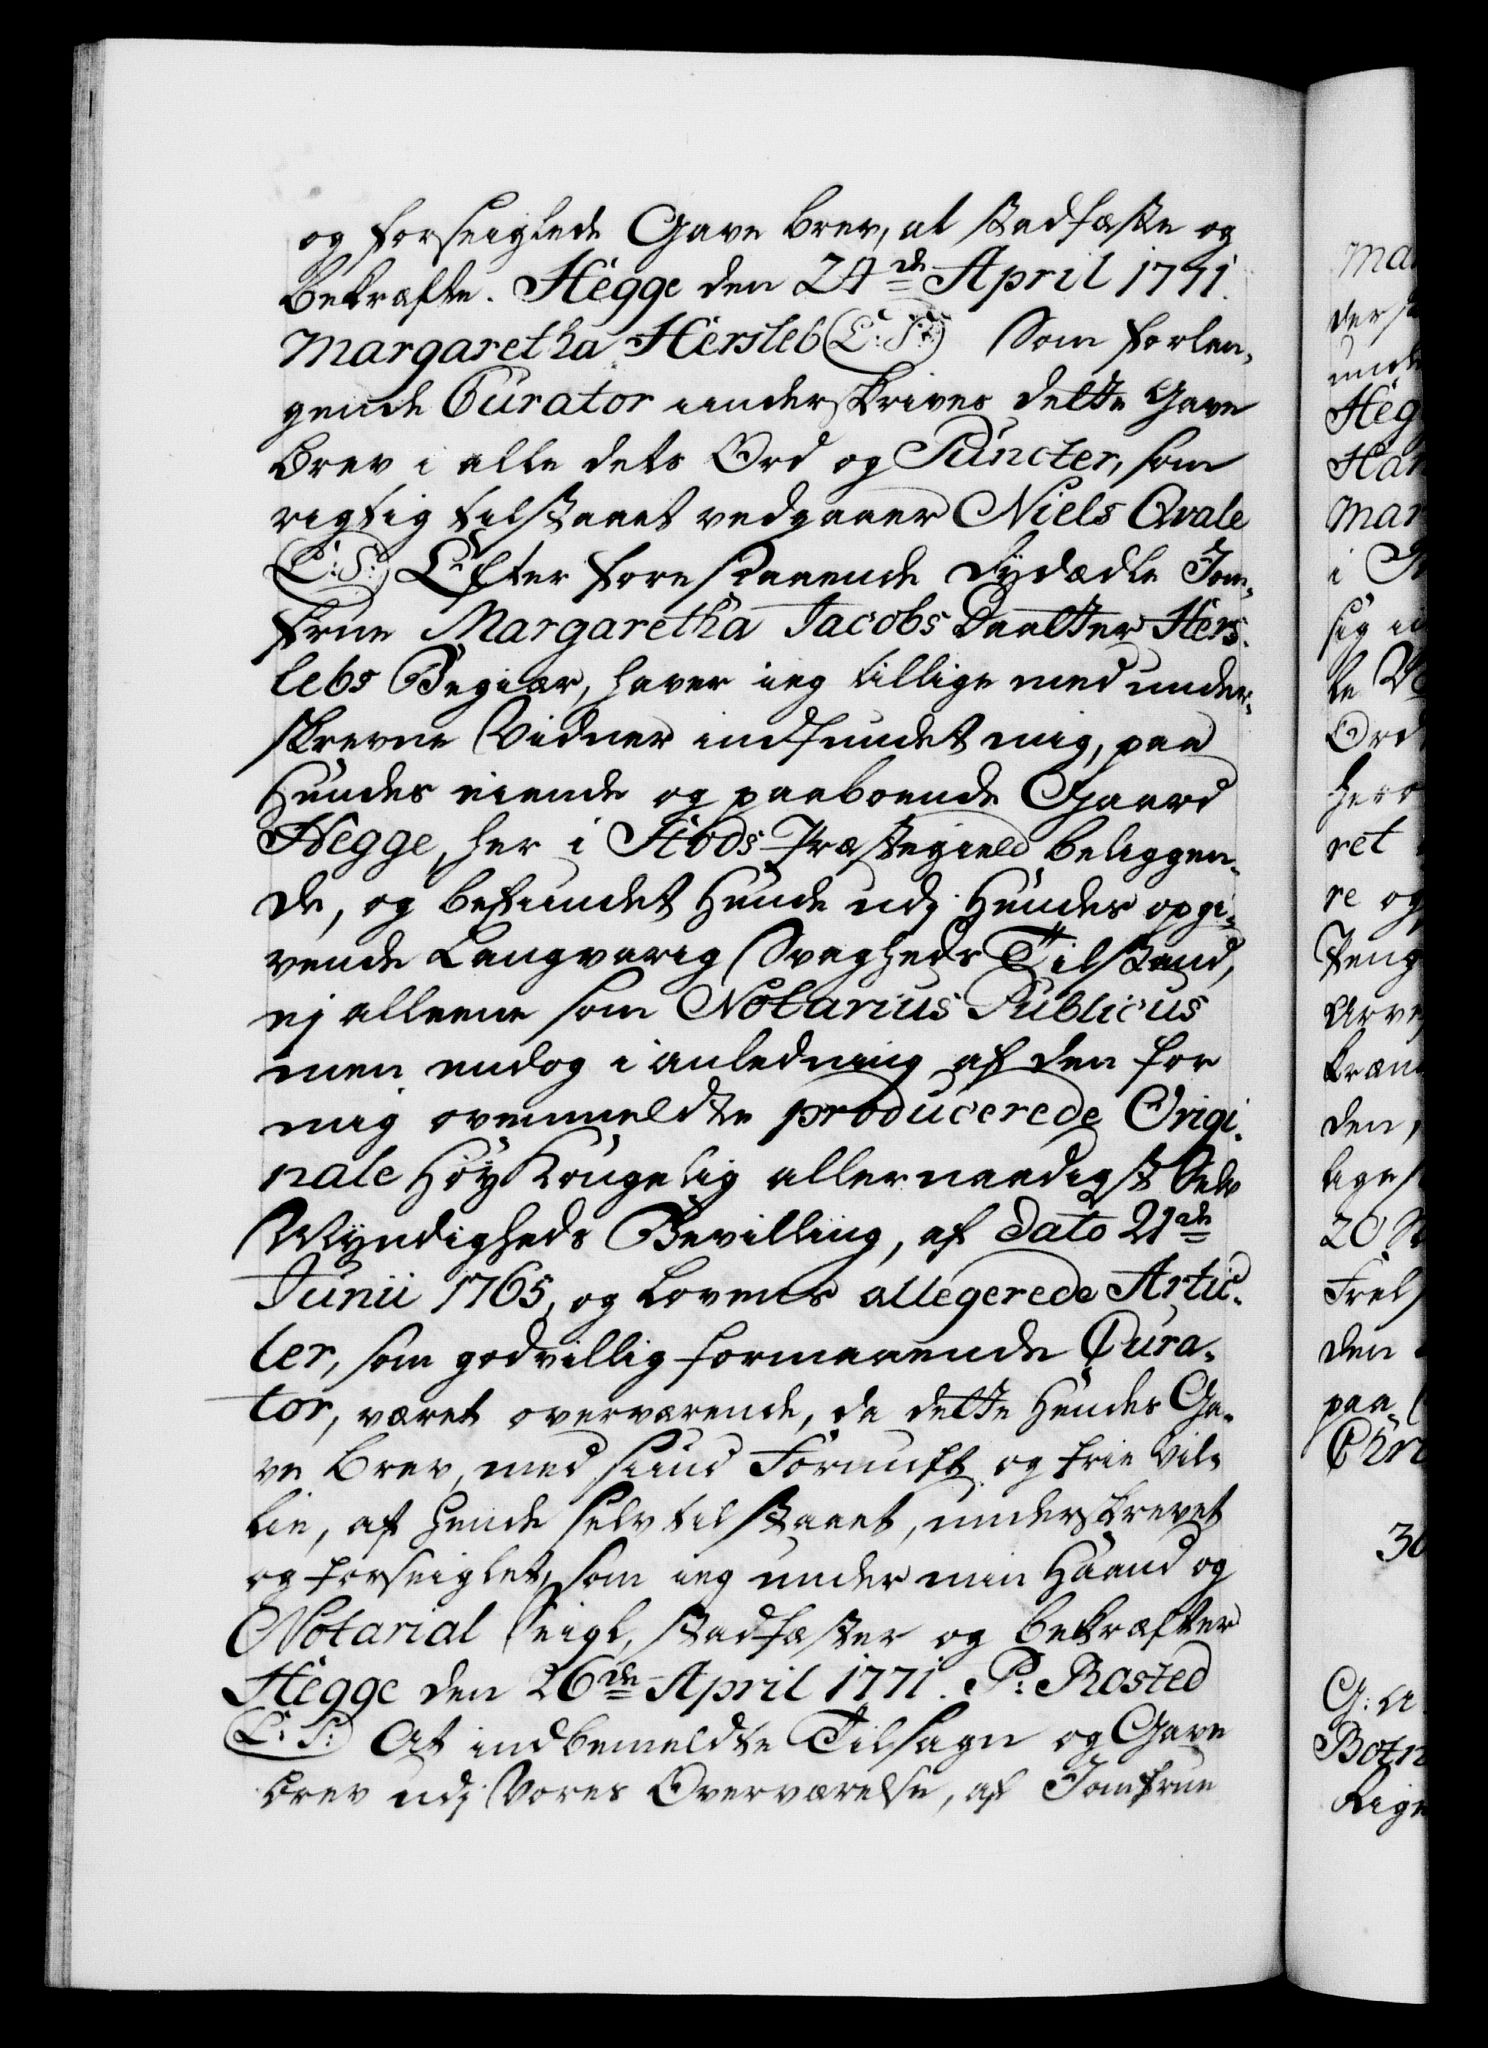 og forseiglede Gave brev, at stadfæste og
bekræfte. Hegge den 24de April 1771.
Margaretha Hersleb (L: S:) Som forlan-
gende Curator underskrives dette Gave
Brev i alle dets Ord og Puncter, som
rigtig tilstaaet vedgaaer Niels Qvale
(L: S:) Efter foreskaaende Dydædle Jom-
frue Margaretha Jacobs Daatter Hers-
lebs Begiær, haver ieg tillige med under-
skrevne Vidner indfundet mig, paa
Hendes eiende og paaboende Gaard
Hegge, her i Stods Præstegield beliggen-
de, og befundet Hende udj Hendes opgi-
vende Langvarig Svagheds Tilstand,
ej alleene som Notarius Publicus
men endog i anledning af den for
mig ovenmeldte producerede Origi-
nale Høy Kongelig allernaadigst Selv
Myndigheds Bevilling, af dato 21de
Junii 1765, og Lovens allegerede Artic-
ler, som godvillig formaaende Cura-
tor, været overværende, da dette Hendes Ga-
ve Brev, med sund Fornuft og frie Vil-
lie, af Hende selv tilstaaet, underskrevet
og forseiglet, som ieg under min Haand og
Notarial Seigl, stadfæster og bekræfter
Hegge den 26de April 1771. P: Rosted
(L: S:) At indbemeldte Tilsagn og Gave
brev udj Vores Overværelse, af Jomfrue